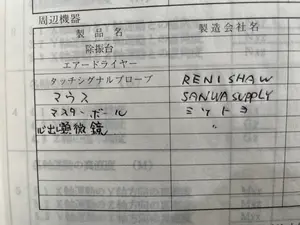 周辺機器
製品名 製造会社名
除振台
エアードライヤー
タッチシグナルプローブ RENISHAW
マウス SANWA SUPPLY
マスターボール ミツトヨ
心出顕微鏡 〃